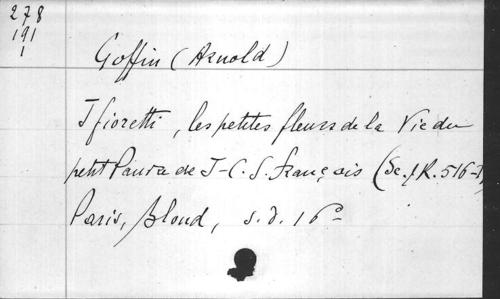 278
191
1
Goffin (Arnold)
I fioretti, les petites fleurs de la Vie du
petit Pauvre de J-C. S. François (Sc. &R. 516-7)
Paris, Bloud, s.d. 16°